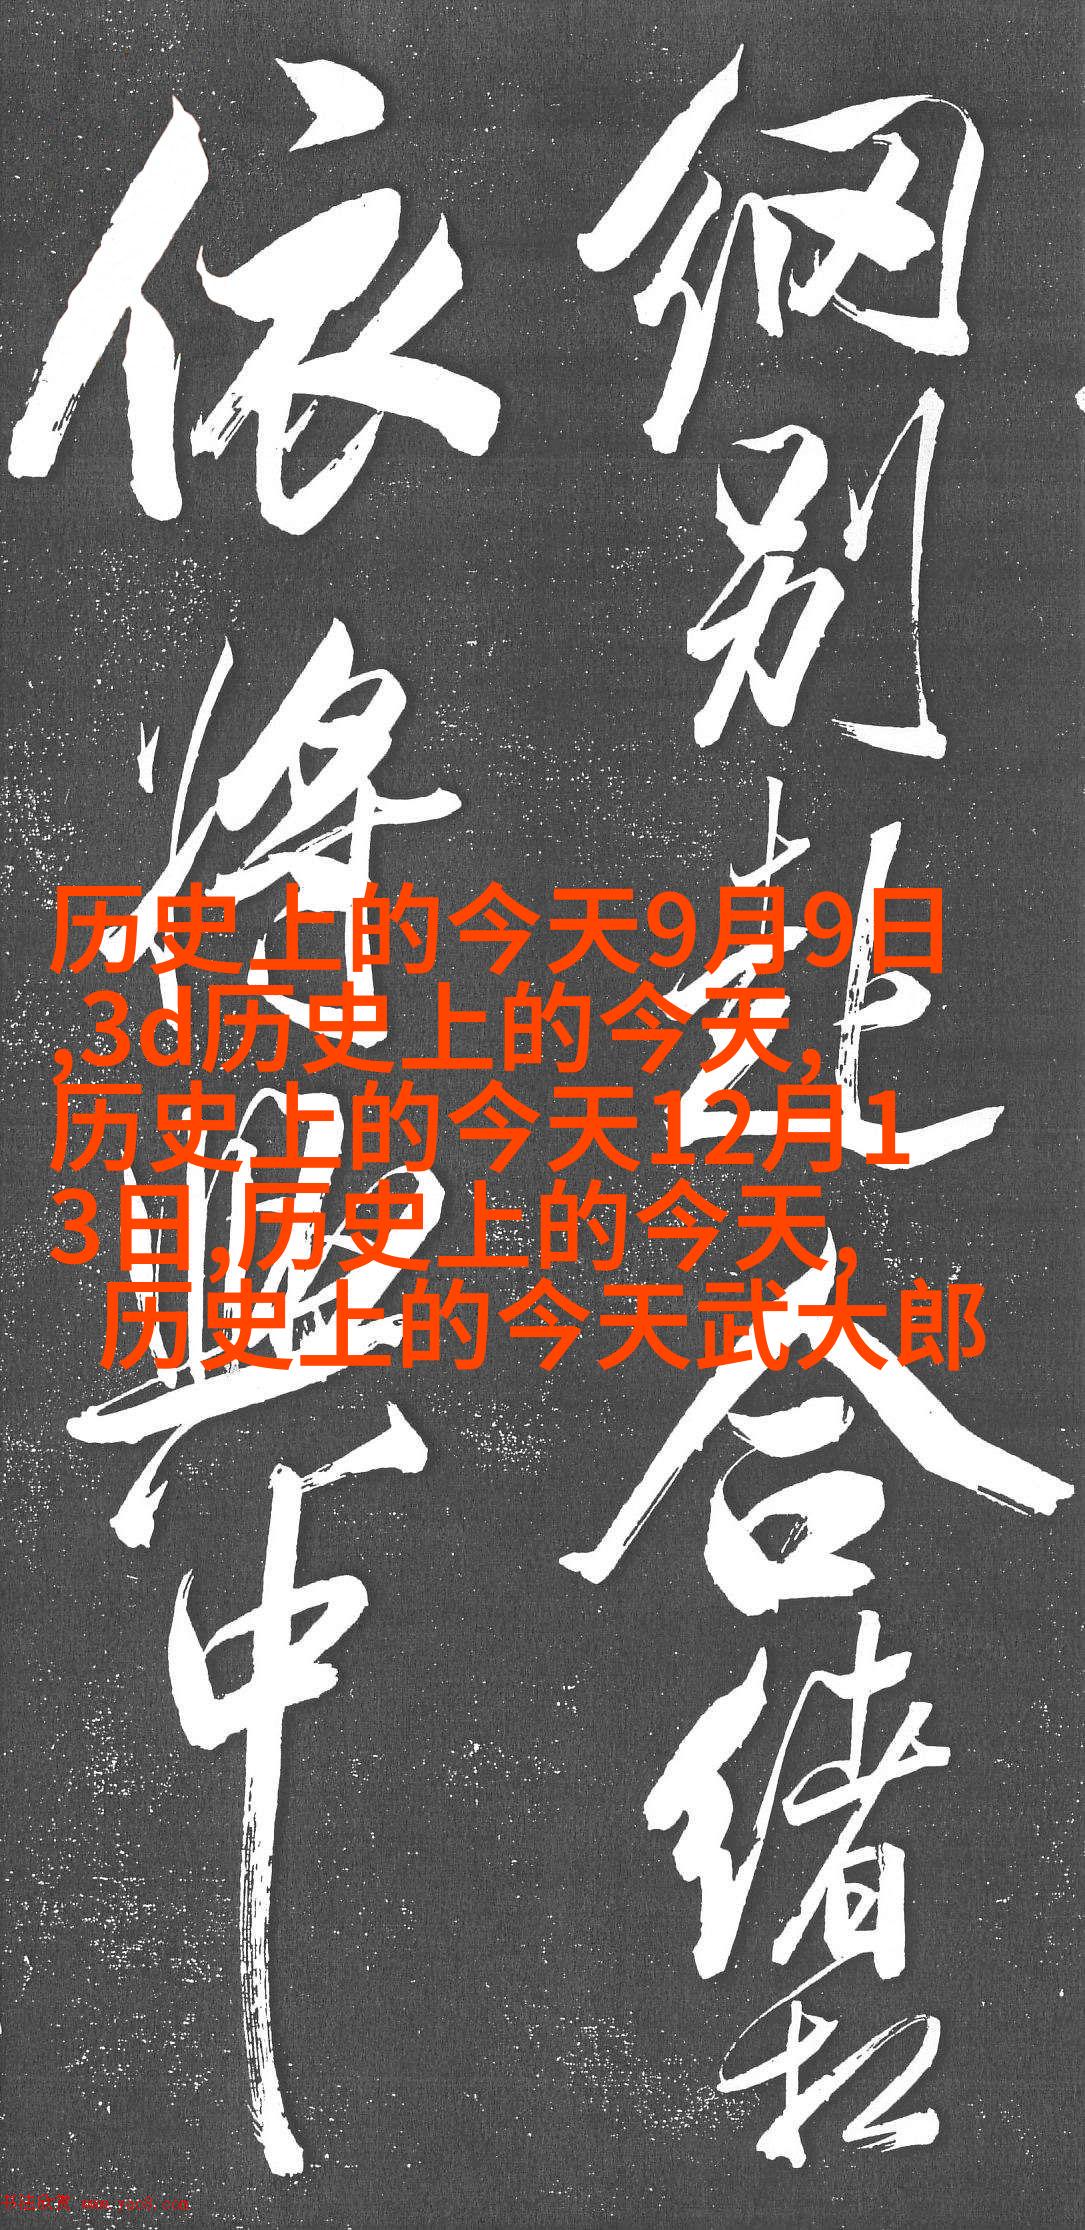 历史上的今天9月9日
,3d历史上的今天,
历史上的今天12月1
3日,历史上的今天,
历史上的今天武大郎
依将
中
别赴合绪
书法欣赏 www.yac8.com